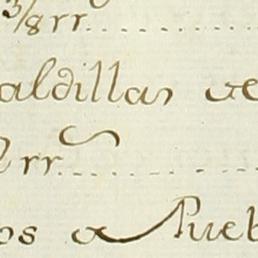 3/8 rr......
aldillas
rr......
os a Pueb